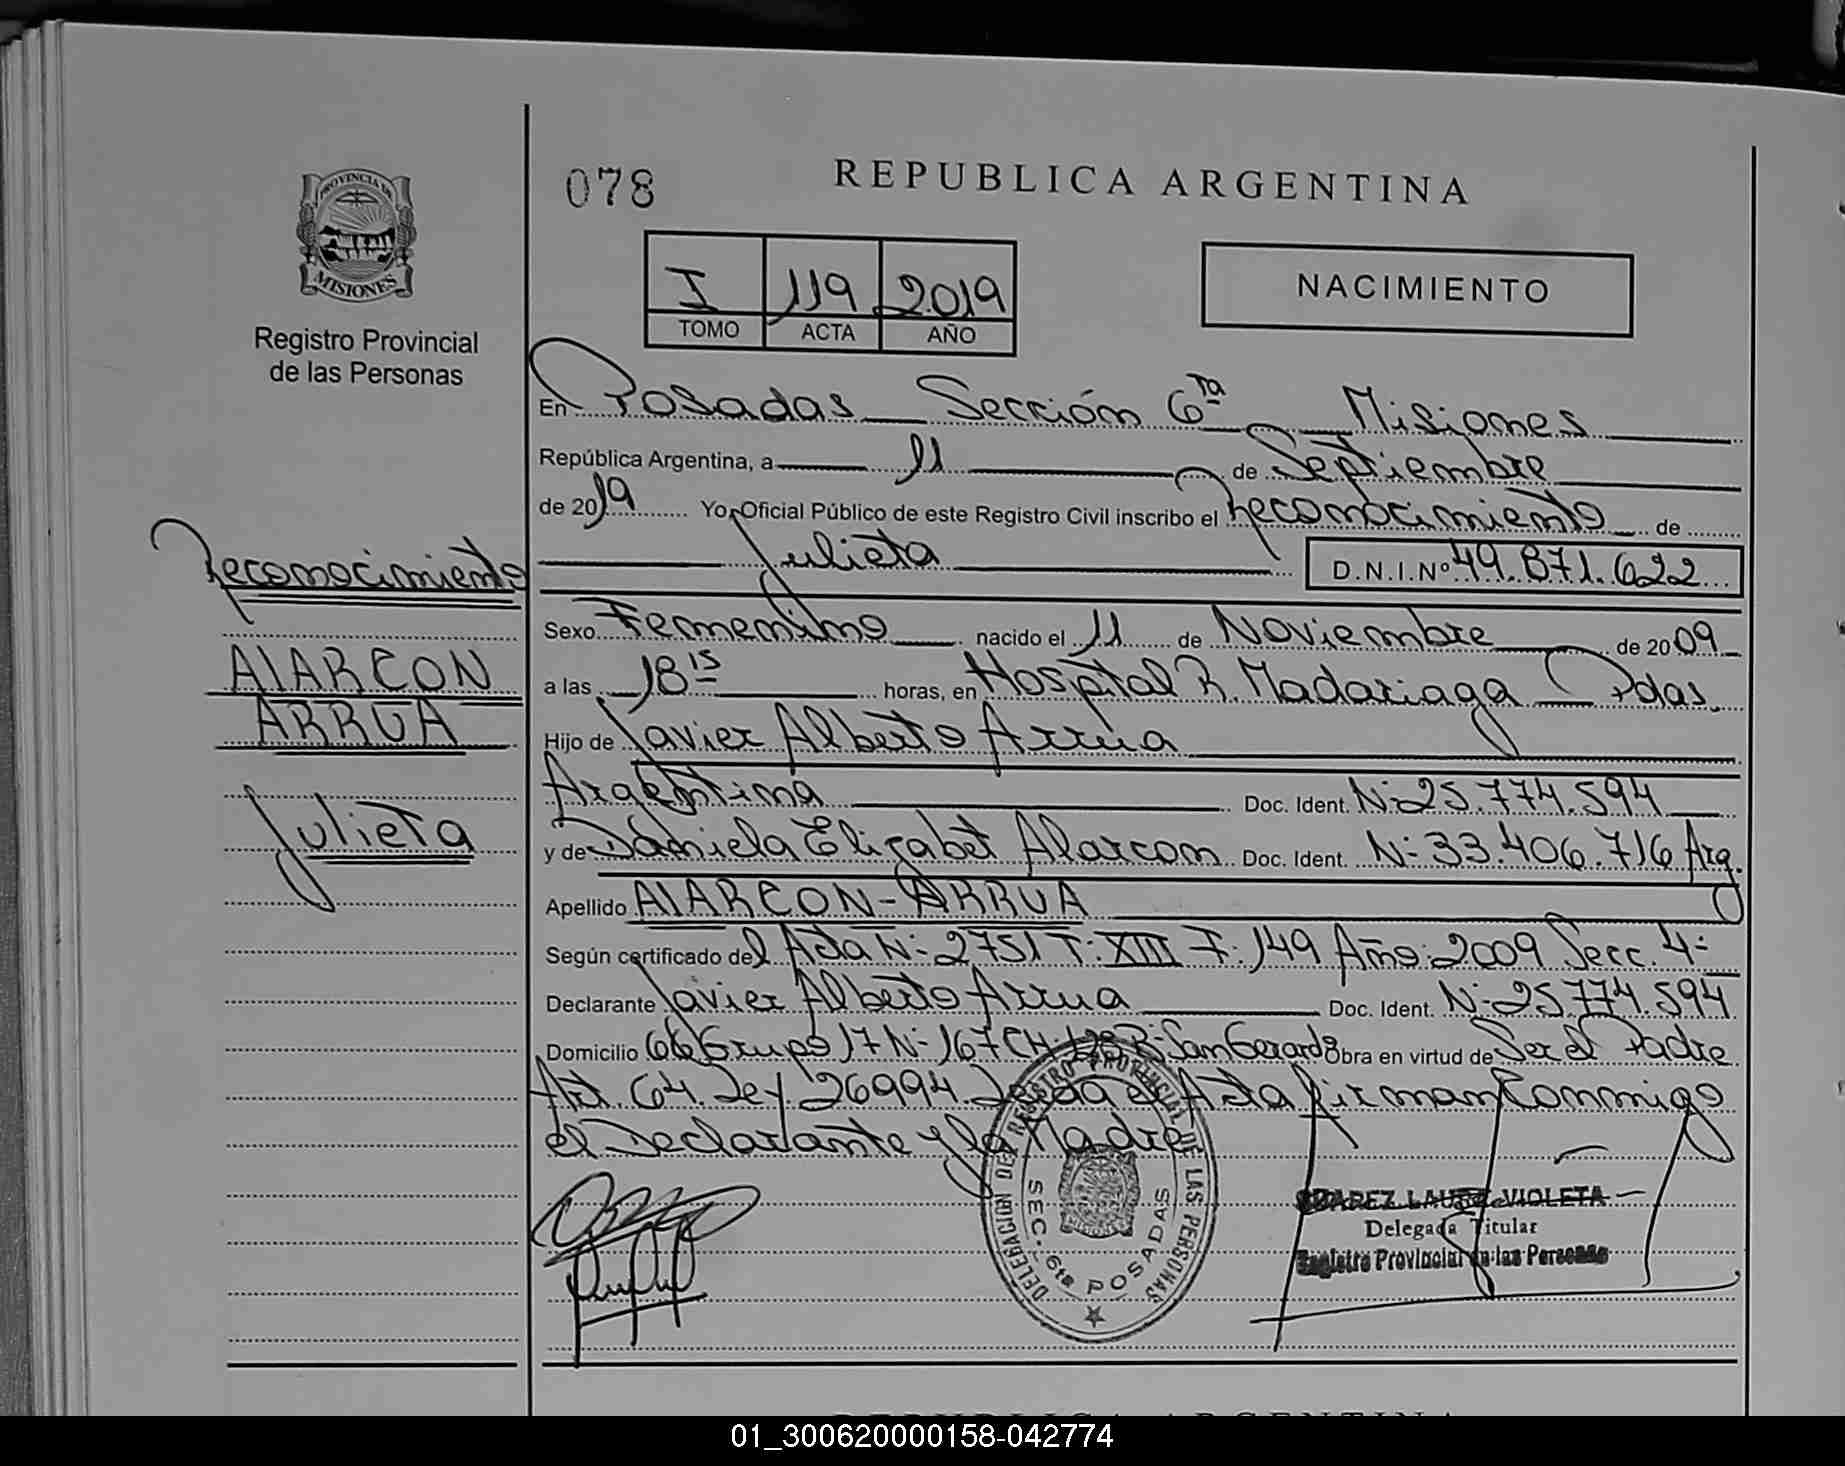 078
REPUBLICA ARGENTINA
PROVINCIA DE
MISIONES
Registro Provincial
de las Personas
I 119 2019
TOMO ACTA AÑO
NACIMIENTO
En Posadas Sección 6ta Misiones
República Argentina, a 11 de Septiembre
de 2019 Yo, Oficial Público de este Registro Civil inscribo el Reconocimiento de
Julieta D.N.I.Nº 49.871.622
Reconocimiento
ALARCON
ARRUA
Julieta
Sexo Femenino nacido el 11 de Noviembre de 2009
a las 18 15 horas, en Hospital R. Madariaga Pdas.
Hijo de Javier Alberto Arrua
Argentina Doc. Ident. N: 25.774.594
y de Daniela Elizabet Alarcon Doc. Ident. N: 33.406.716 Arg.
Apellido ALARCON-ARRUA
Según certificado del Acta N: 2751 T: XIII F: 149 Año: 2009 Secc. 4:
Declarante Javier Alberto Arrua Doc. Ident. N: 25.774.594
Domicilio Grupo 17 N: 167 CH: San Gerardo Obra en virtud de Ser el Padre
Art. 64. Ley. 26994. Leida el Acta firman conmigo
el Declarante y la Madre
DELEGACION DEL REGISTRO PROVINCIAL DE LAS PERSONAS
SEC. 6ta POSADAS
SUAREZ VIOLETA
Delegada Titular
Registro Provincial de las Personas
REPUBLICA ARGENTINA
01_300620000158-042774